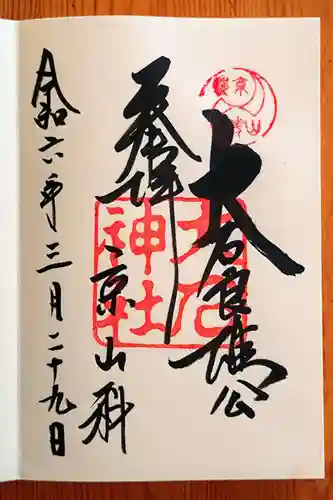 大石良雄公
奉拝
京山科
大石
神社
令和六年三月二十九日